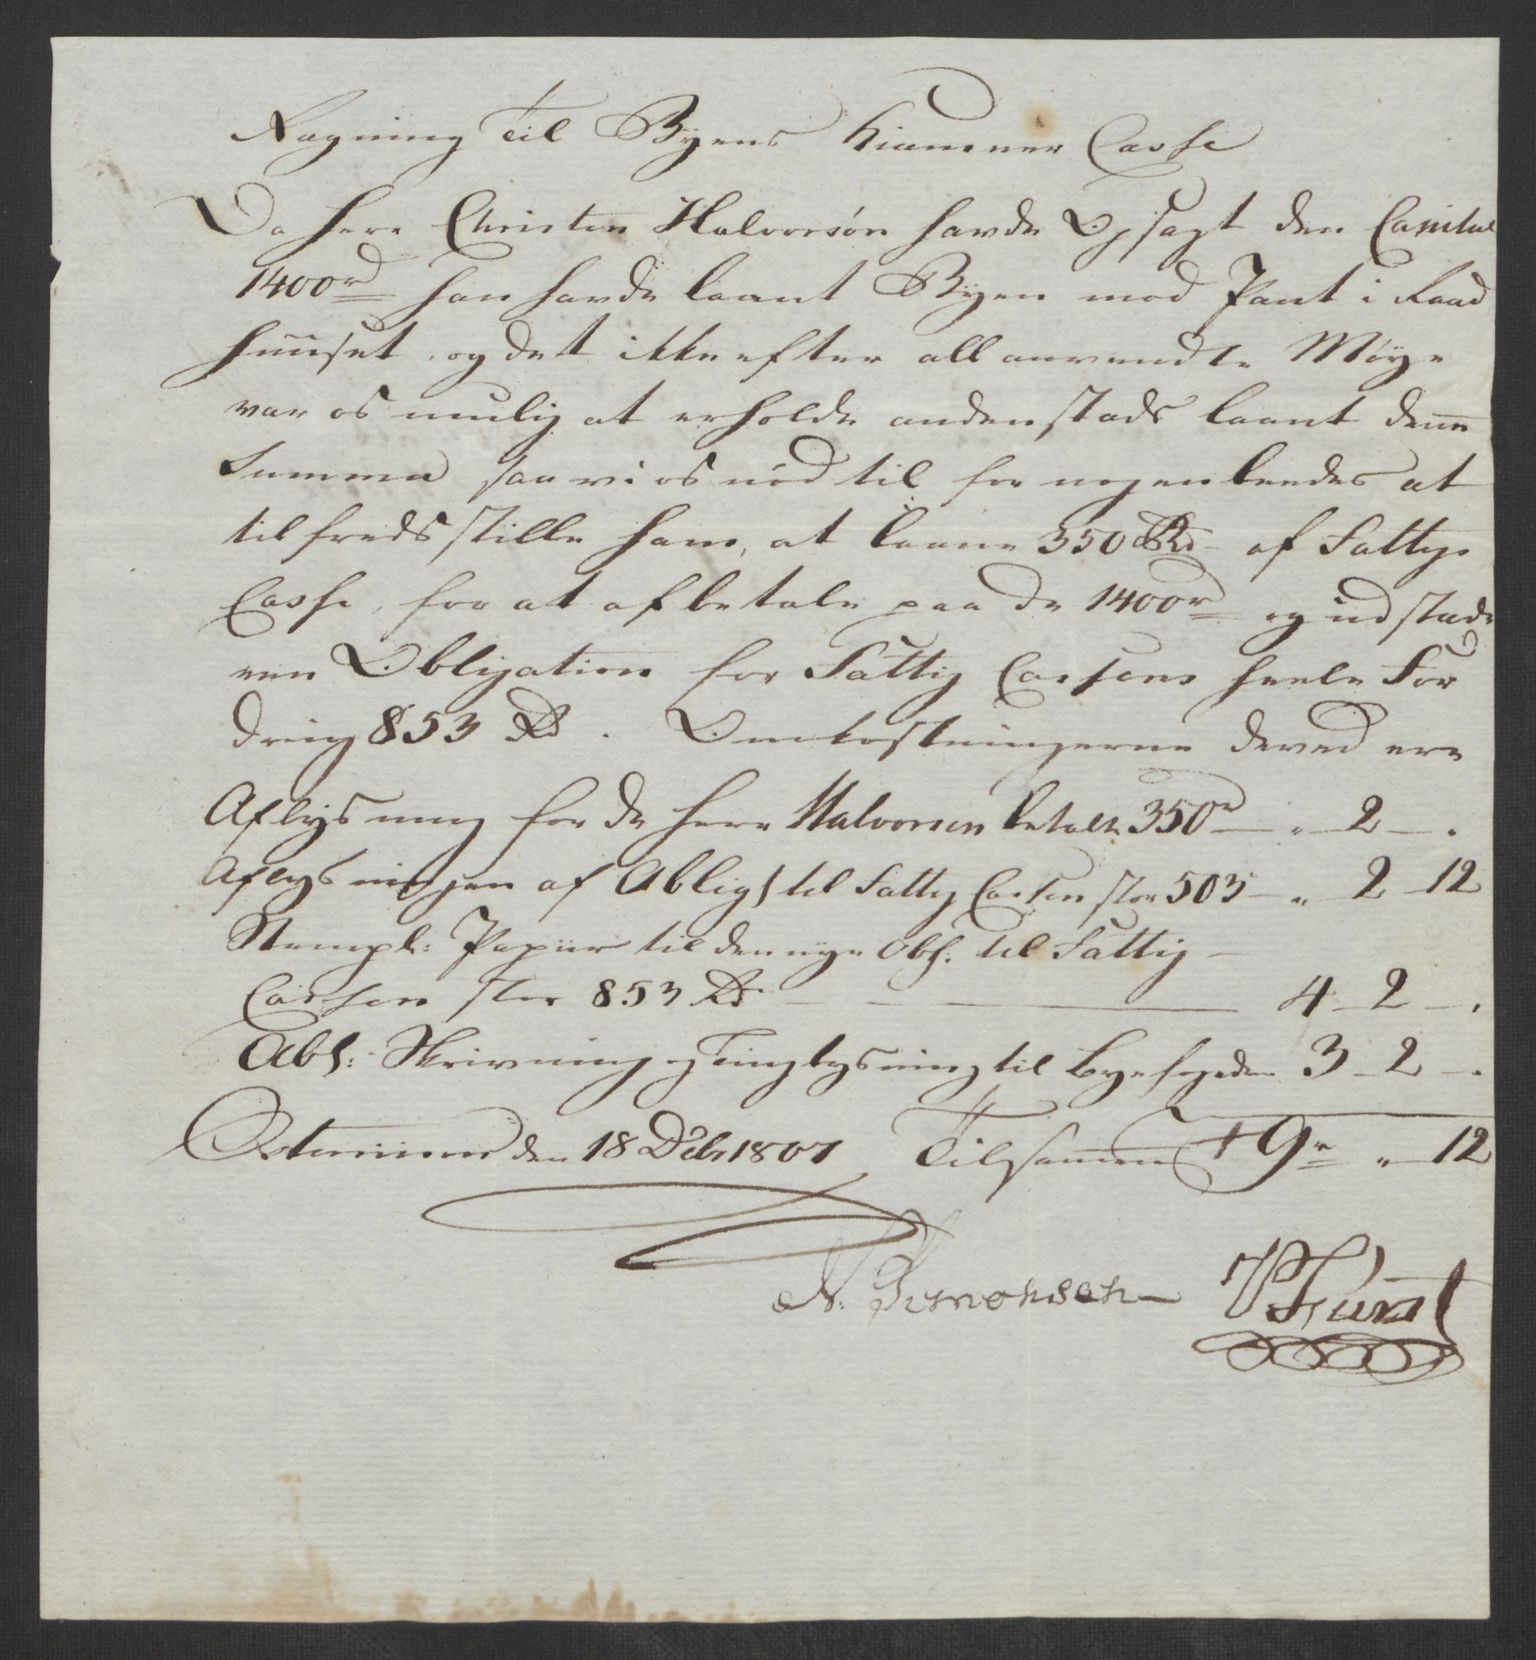 Regning Til Byens Kiæmner Casse
Da Herr Christen Halvorsøn havde Opsagt den Capital
1400rd han havde laant Byen mod Pant i Raad
huuset, og det ikke efter all anvendte Møye
var os mulig at erholde andenstads laant denne
Summa saa vi os nød til for nogenledes at
tilfredsstille ham, at laane 350 Rd af Fattig
Casse, for at afbetale paa de 1400rd og udstæde
een Obligation for Fattig Cassens heele For
dring 853 Rd. Omkostningerne derved ere
Aflysning for de Herr Halvorsen betalte 350rd — " — 2 — .
Aflysningen af Obligt til Fattig Cassen stor 503 — " — 2 — 12
Stempl: Papiir til den nye Obl: til Fattig —
Cassen stor 853 Rd — 4 — 2 — .
Obl: Skrivning og Tinglysning til Byefogden 3 — 2 — .
Østerriisøer den 18 Debr 1807 Tilsammen 9r " — 12
N. Simonsen